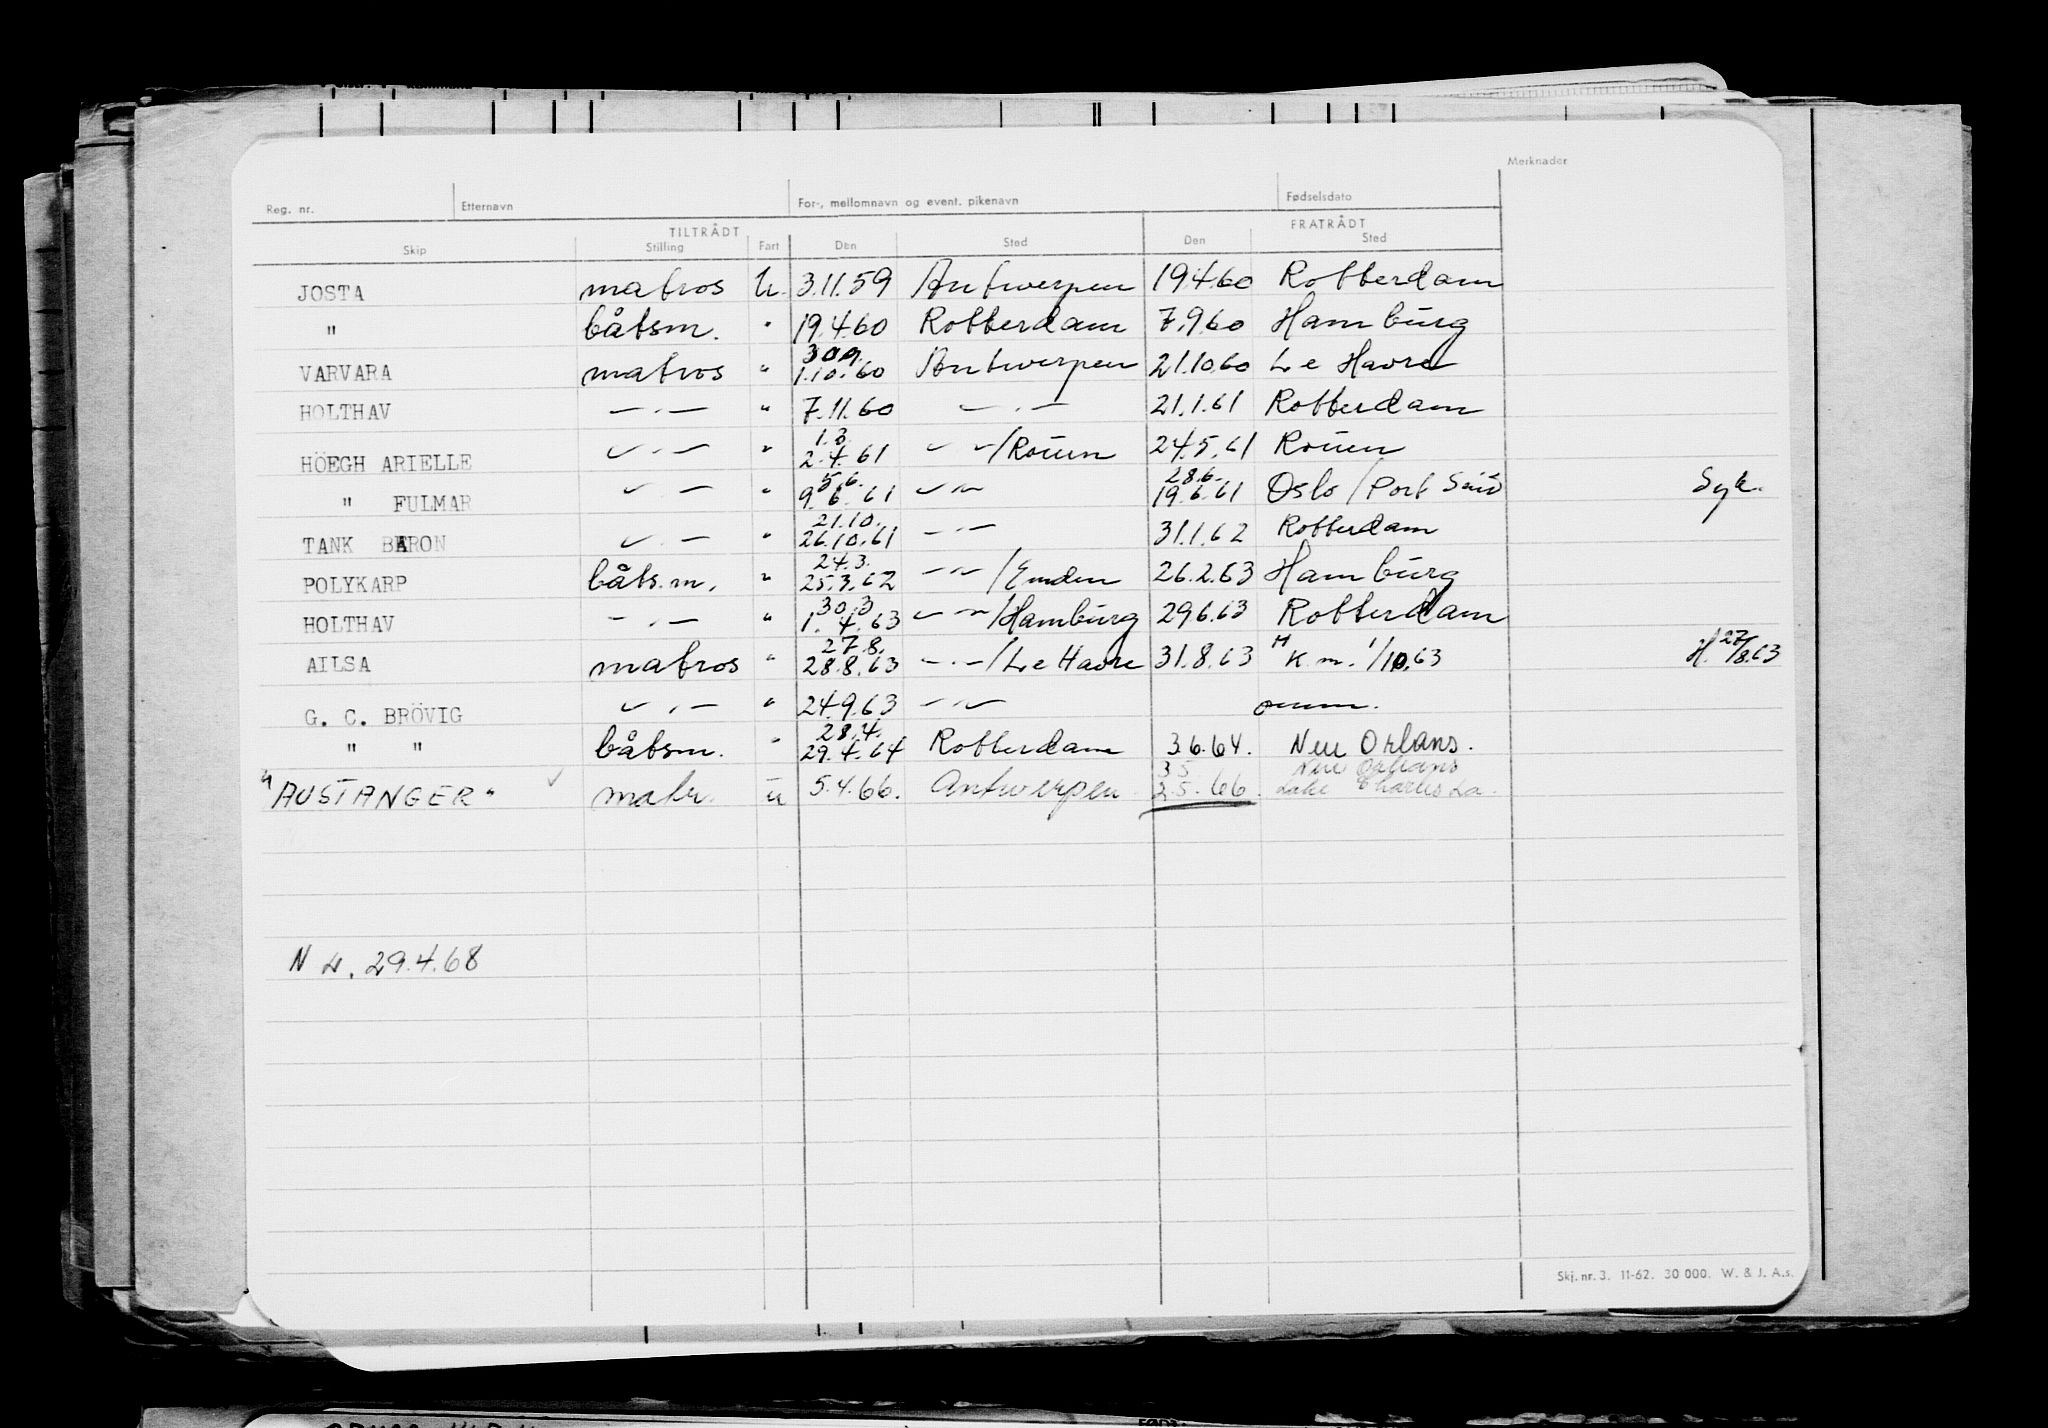 Merknader
Reg. nr. Etternavn For-, mellomnavn og event. pikenavn Fødselsdato
TILTRÅDT FRATRÅDT
Skip Stilling Fart Den Sted Den Sted
JOSTA matros U. 3.11.59 Antwerpen 19.4.60 Rotterdam
" båtsm. " 19.4.60 Rotterdam 7.9.60 Hamburg
30.9.
VARVARA matros " 1.10.60 Antwerpen 21.10.60 Le Havre
HOLTHAV — . — " 7.11.60 — . — 21.1.61 Rotterdam
1.3.
HÖEGH ARIELLE — . — " 2.4.61 — " —/Rouen 24.5.61 Rouen
5.6. 28.6.
" FULMAR — . — " 9.6.61 — " — 19.6.61 Oslo/Port Said Syk.
21.10.
TANK BARON — . — " 26.10.61 — " — 31.1.62 Rotterdam
24.3.
POLYKARP båtsm. " 25.3.62 — " —/Emden 26.2.63 Hamburg
30.3
HOLTHAV — . — " 1.4.63 — " —/Hamburg 29.6.63 Rotterdam
27.8.
AILSA matros " 28.8.63 — . —/Le Havre 31.8.63 H K.m. 1/10.63 H. 27/8.63
G. C. BRÖVIG — . — " 24.9.63 — " — omm.
28.4.
" " båtsm. " 29.4.64 Rotterdam 3.6.64. New Orlans.
3 5 New Orleans
"AUSTANGER" ✓ matr. u 5.4.66. Antwerpen 2.5.66. Lake Charles La.
N 29.4.68
Skj. nr. 3. 11-62. 30 000. W. & J. A.s.